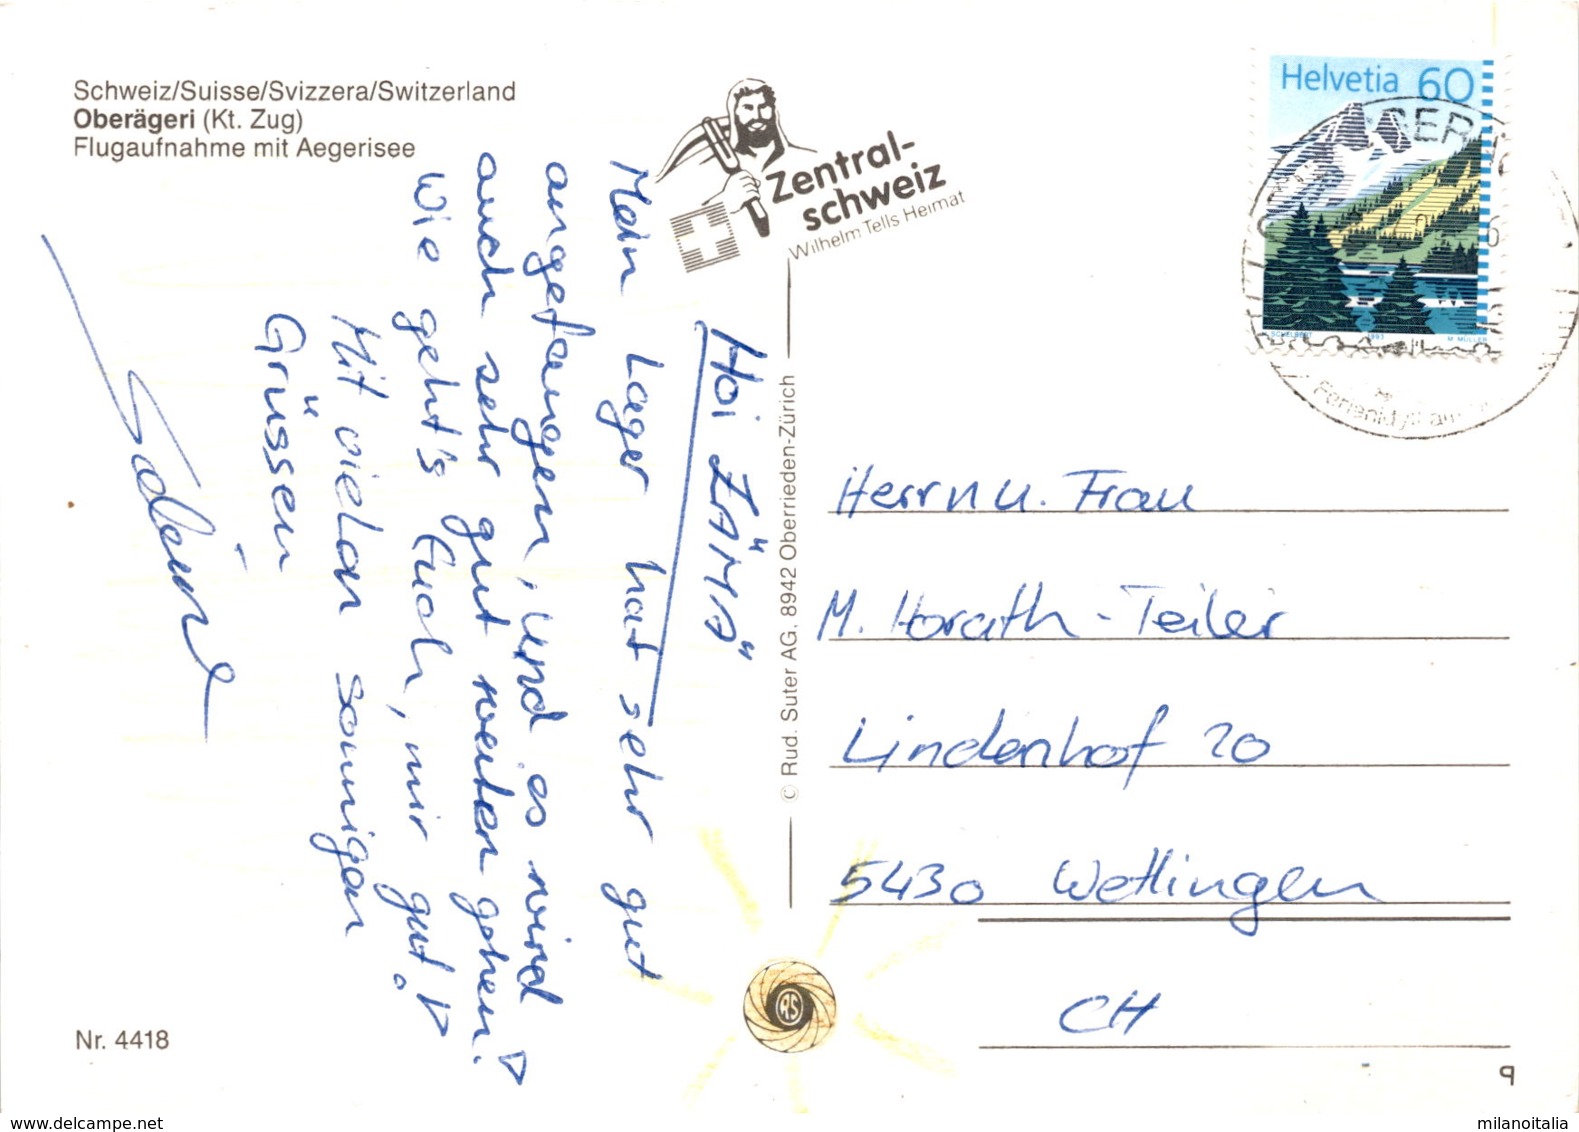 Schweiz/Suisse/Svizzera/Switzerland
Oberägeri (Kt. Zug)
Flugaufnahme mit Aegerisee
Zentral-
schweiz
Wilhelm Tells Heimat
Helvetia 60
M. MÜLLER
Hoi ZÄMÄ
Mein Lager hat sehr gut
angefangen, und es wird
auch sehr gut weiter gehen!
Wie geht's Euch, mir gut!
Mit vielen sonnigen
Grüssen
© Rud. Suter AG, 8942 Oberrieden-Zürich
Herrn u. Frau
M. Horath-Teiler
Lindenhof 20
5430 Wettingen
CH
RS
Nr. 4418
9
www.delcampe.net
milanoitalia